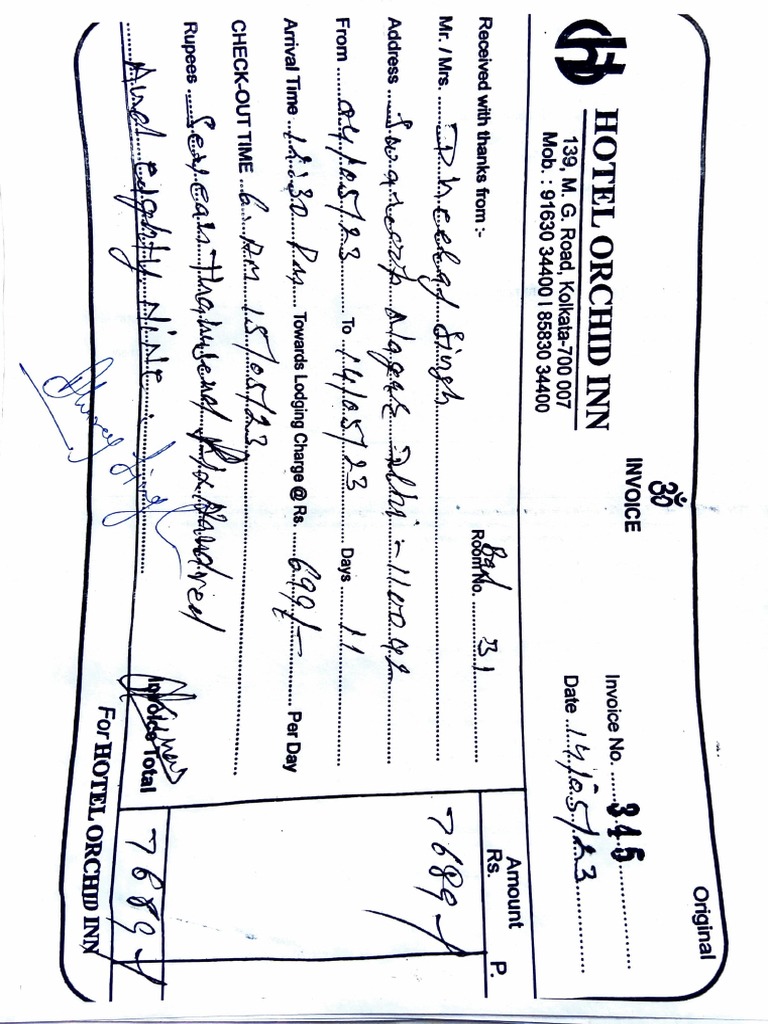 Original
ॐ
INVOICE
HOTEL ORCHID INN
139, M. G. Road, Kolkata-700 007
Mob. : 91630 34400 I 85830 34400
Invoice No. ....... 345
Date ..14/05/23
Received with thanks from :- Bed Room No. ..... 31
Mr. / Mrs. ..... Dheeraj Singh
Address ..... Nagar Delhi - 110092
From ..... 04/05/23 To ... 14/05/23 Days .... 11
Arrival Time ... 12:30 Pm Towards Lodging Charge @ Rs. .... 699/- Per Day
CHECK-OUT TIME .. 6:AM 15/05/23
Rupees .... Seven Thousand Six Hundred
And eighty Nine.
Amount
Rs. P.
7689/
Invoice Total 7689/
For HOTEL ORCHID INN